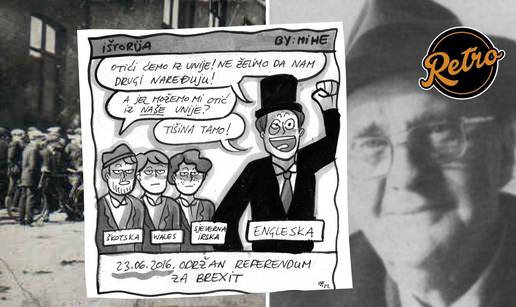 IŠTORIJA
BY: MIME
OTIĆI ĆEMO IZ UNIJE! NE ŽELIMO DA NAM
DRUGI NAREĐUJU!
A JEL MOŽEMO MI OTIĆ
IZ NAŠE UNIJE?
TIŠINA TAMO!
ŠKOTSKA
WALES
SJEVERNA
IRSKA
ENGLESKA
23.06.2016. ODRŽAN REFERENDUM
ZA BREXIT
Retro